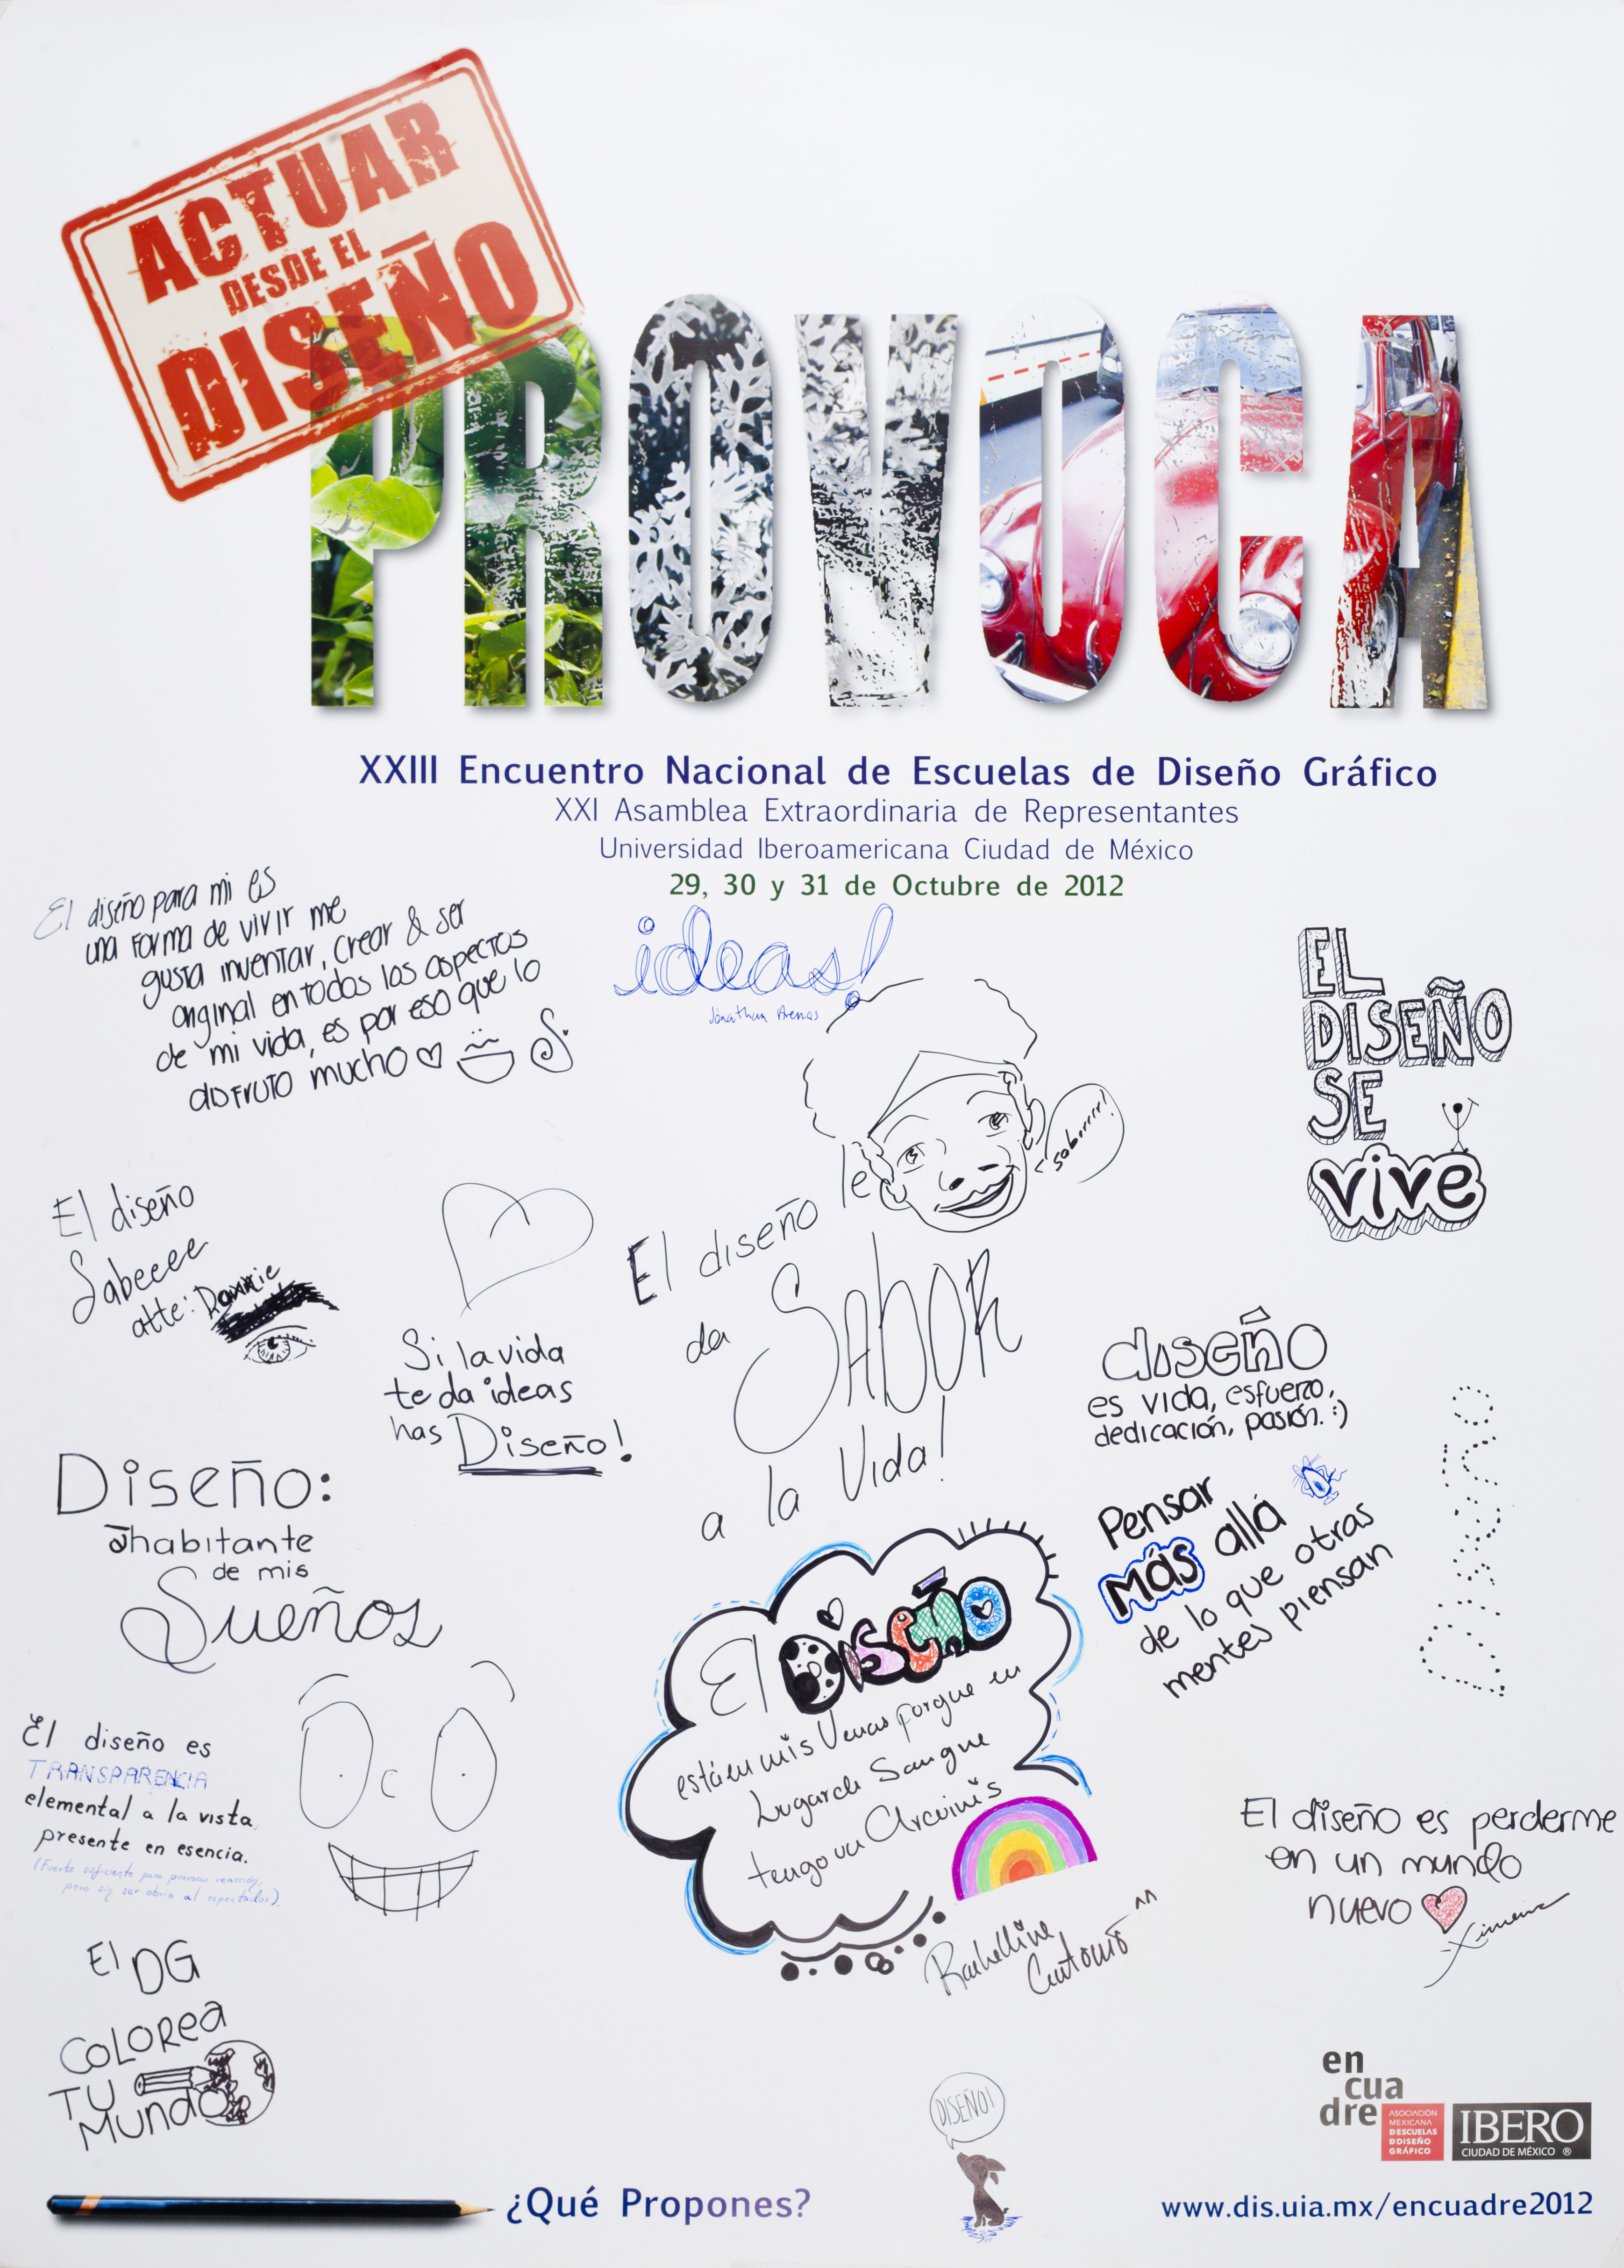 ACTUAR
DESDE EL
DISEÑO
PROVOCA
XXIII Encuentro Nacional de Escuelas de Diseño Gráfico
XXI Asamblea Extraordinaria de Representantes
Universidad Iberoamericana Ciudad de México
29, 30 y 31 de Octubre de 2012
El diseño para mi es
una forma de vivir me
gusta inventar, crear & ser
original en todos los aspectos
de mi vida, es por eso que lo
disfruto mucho
ideas!
Jonathan Arenas
saborrrr!
EL
DISEÑO
SE
vive
El diseño
Sabeeee
atte: Donnie
Si la vida
te da ideas
has Diseño!
El diseño le
da SABOR
a la Vida!
diseño
es vida, esfuerzo,
dedicación, pasión. :)
Diseño:
habitante
de mis
Sueños
Pensar
más allá
de lo que otras
mentes piensan
Diseño
El DiSEÑO
está en mis Venas porque en
Lugar de Sangre
tengo un Arcoiris
Antonio ^^
El diseño es
TRANSPARENCIA
elemental a la vista,
presente en esencia.
(Fuerte suficiente para provocar reacción,
pero sin ser obvio al espectador).
El diseño es perderme
en un mundo
nuevo
Ximena
El DG
COLOREA
TU
MUNDO
DISEÑO!
en
cua
dre
ASOCIACIÓN
MEXICANA
DESCUELAS
DDISEÑO
GRÁFICO
IBERO
CIUDAD DE MÉXICO ®
¿Qué Propones?
www.dis.uia.mx/encuadre2012